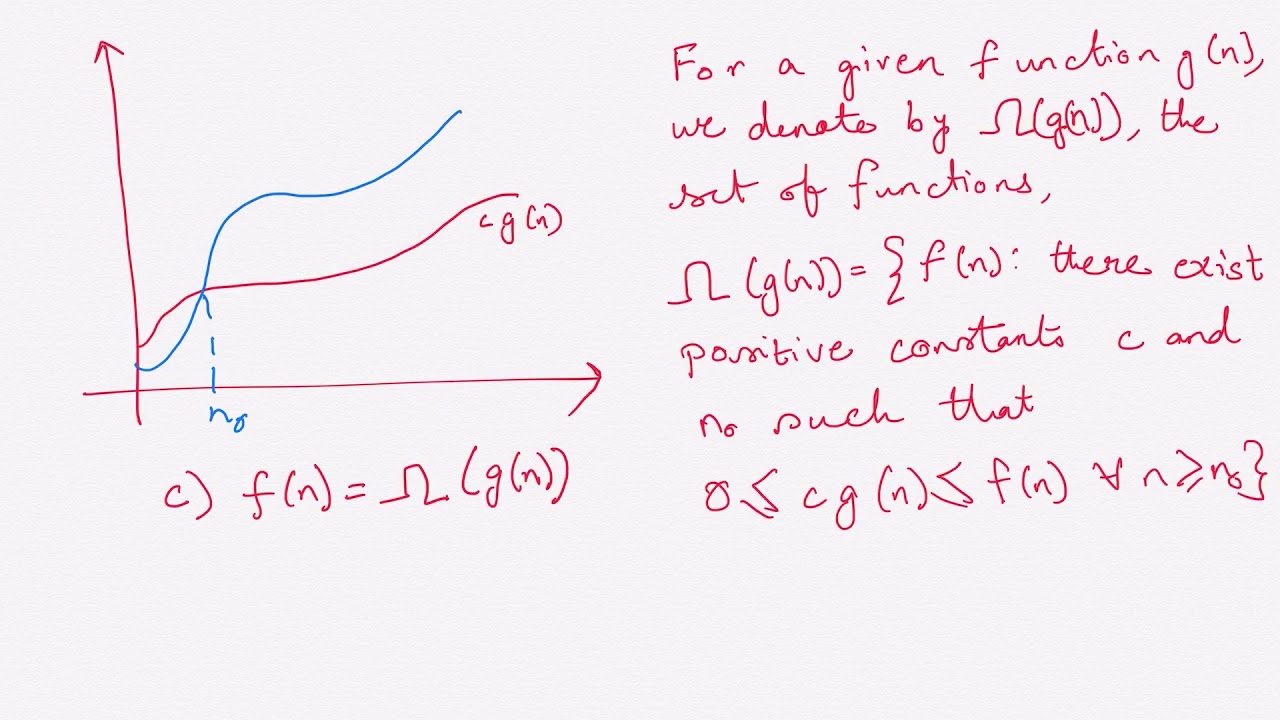 cg(n)
n₀
c) f(n) = Ω(g(n))
For a given function g(n),
we denote by Ω(g(n)), the
set of functions,
Ω(g(n)) = { f(n): there exist
positive constants c and
n₀ such that
0 ≤ cg(n) ≤ f(n) ∀ n ≥ n₀}